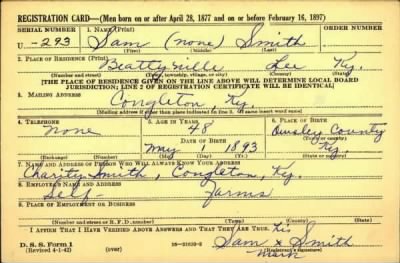 REGISTRATION CARD—(Men born on or after April 28, 1877 and on or before February 16, 1897)
SERIAL NUMBER 1. NAME (Print) ORDER NUMBER
U.-293 Sam (none) Smith
(First) (Middle) (Last)
2. PLACE OF RESIDENCE (Print)
Beattyville Lee Ky.
(Number and street) (Town, township, village, or city) (County) (State)
[THE PLACE OF RESIDENCE GIVEN ON THE LINE ABOVE WILL DETERMINE LOCAL BOARD
JURISDICTION; LINE 2 OF REGISTRATION CERTIFICATE WILL BE IDENTICAL]
3. MAILING ADDRESS
Congleton, Ky.
[Mailing address if other than place indicated on line 2. If same insert word same]
4. TELEPHONE 5. AGE IN YEARS 6. PLACE OF BIRTH
None 48 Owsley County
DATE OF BIRTH (Town or county)
May 1 1893 Ky.
(Exchange) (Number) (Mo.) (Day) (Yr.) (State or country)
7. NAME AND ADDRESS OF PERSON WHO WILL ALWAYS KNOW YOUR ADDRESS
Charity Smith, Congleton, Ky.
8. EMPLOYER'S NAME AND ADDRESS
Self- Farms
9. PLACE OF EMPLOYMENT OR BUSINESS
(Number and street or R. F. D. number) (Town) (County) (State)
I AFFIRM THAT I HAVE VERIFIED ABOVE ANSWERS AND THAT THEY ARE TRUE.
his
Sam x Smith
D. S. S. Form 1 (Registrant's signature)
(Revised 4-1-42) (over) 16-21630-2 mark